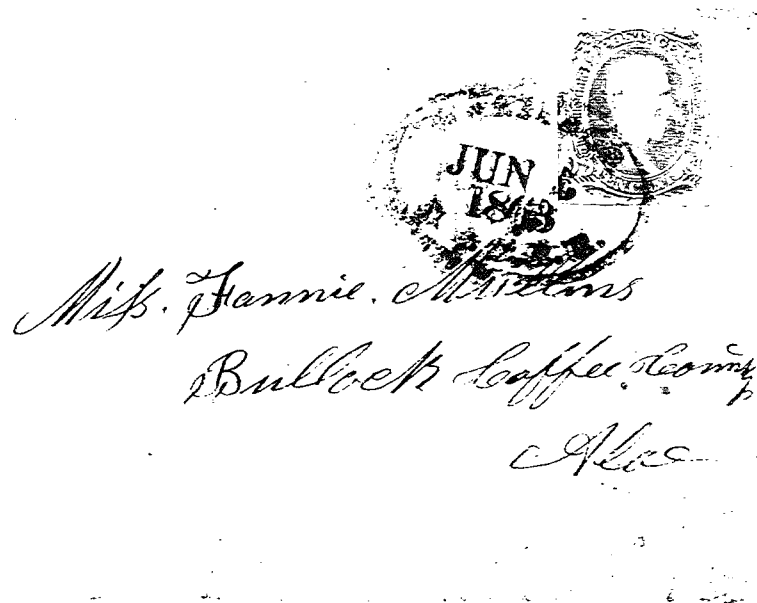 JUN 5
1863
Miss. Fannie. Mullins
Bullock Coffee County
Ala